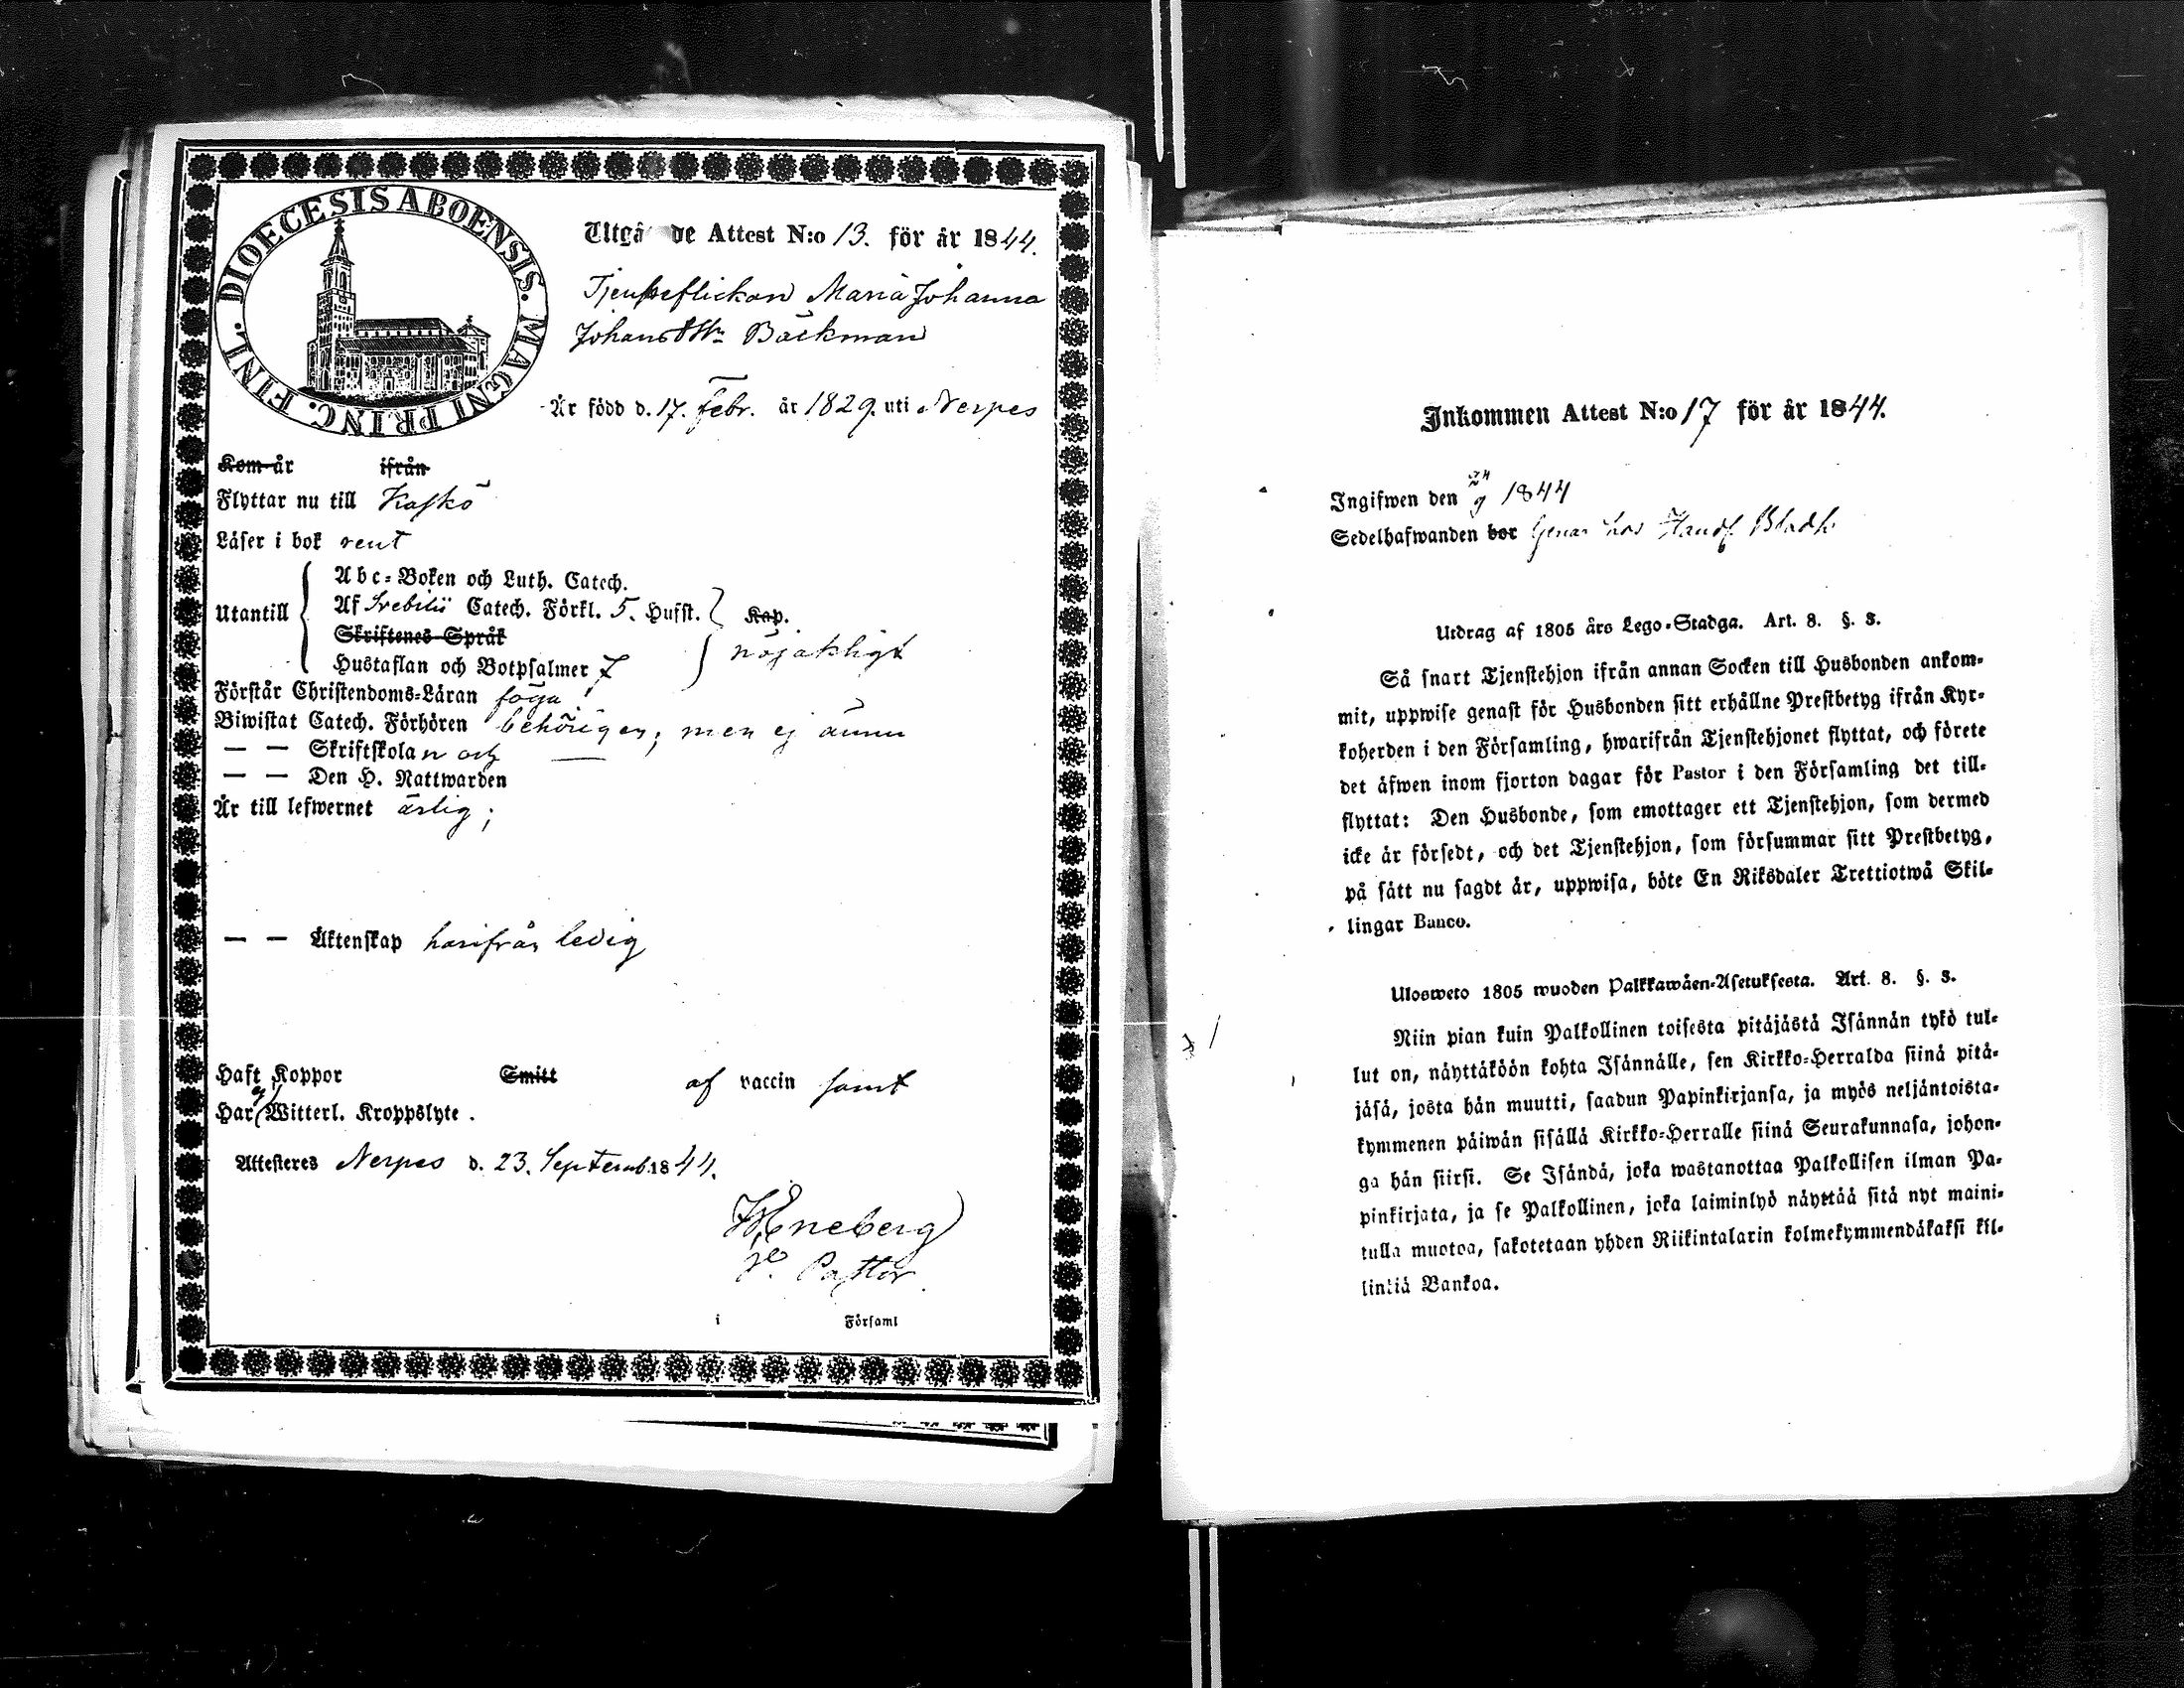 DIOECESIS ABOENSIS. MAGNI PRINC. FINL.
Utgå de Attest N:o 13. för år 1844.
Tjensteflickan Maria Johanna
Johansdtr Bäckman
Är född d. 17. Febr. år 1829. uti Nerpes
Kom år ifrån
Flyttar nu till Kaskö
Läser i bok rent
Utantill
Abc-Boken och Luth. Catech.
Af Svebilii Catech. Förkl. 5. Hufst. Kap.
Skriftenes Språk
nöjaktligt
Hustaflan och Botpsalmer 7
Förstår Christendoms-Läran föga
Biwistat Catech. Förhören behörigen; men ej ännu
— — Skriftskolan och —
— — Den H. Nattwarden
Är till lefwernet ärlig;
— — Äktenskap härifrån ledig
Haft Koppor Smitt af vaccin samt
Har ej Witterl. Kroppslyte.
Attesteres Nerpes d. 23. Septemb. 1844.
Pastor.
i Församl
Inkommen Attest N:o 17 för år 1844.
Ingifwen den 9 1844
Sedelhafwanden bor hos Handl. Bladh
Utdrag af 1805 års Lego-Stadga. Art. 8. §. 3.
Så snart Tjenstehjon ifrån annan Socken till Husbonden ankom-
mit, uppwise genast för Husbonden sitt erhållne Prestbetyg ifrån Kyr-
koherden i den Församling, hwarifrån Tjenstehjonet flyttat, och förete
det äfwen inom fjorton dagar för Pastor i den Församling det till-
flyttat: Den Husbonde, som emottager ett Tjenstehjon, som dermed
icke är försedt, och det Tjenstehjon, som försummar sitt Prestbetyg,
på sätt nu sagdt är, uppwisa, böte En Riksdaler Trettiotwå Skil-
lingar Banco.
Ulosweto 1805 wuoden Palkkawäen-Asetuksesta. Art. 8. §. 3.
Niin pian kuin Palkollinen toisesta pitäjästä Isännän tykö tul-
lut on, näyttäköön kohta Isännälle, sen Kirkko-Herralda siinä pitä-
jäsä, josta hän muutti, saadun Papinkirjansa, ja myös neljäntoista-
kymmenen päiwän sisällä Kirkko-Herralle siinä Seurakunnasa, johon-
ga hän siirsi. Se Isändä, joka wastanottaa Palkollisen ilman Pa-
pinkirjata, ja se Palkollinen, joka laiminlyö näyttää sitä nyt maini-
tulla muotoa, sakotetaan yhden Riikintalarin kolmekymmendäkaksi kil-
linkiä Bankoa.